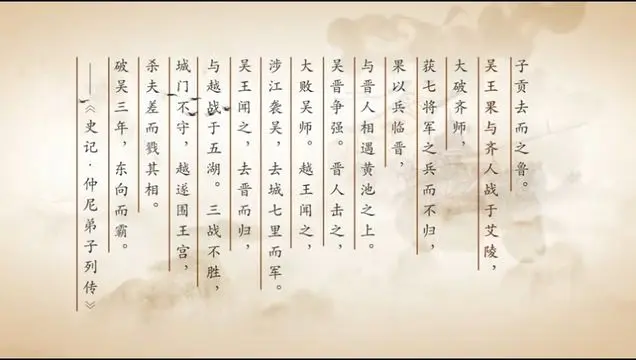 子贡去而之鲁。
吴王果与齐人战于艾陵，
大破齐师，
获七将军之兵而不归，
果以兵临晋，
与晋人相遇黄池之上。
吴晋争强。晋人击之，
大败吴师。越王闻之，
涉江袭吴，去城七里而军。
吴王闻之，去晋而归，
与越战于五湖。三战不胜，
城门不守，越遂围王宫，
杀夫差而戮其相。
破吴三年，东向而霸。
——《史记·仲尼弟子列传》